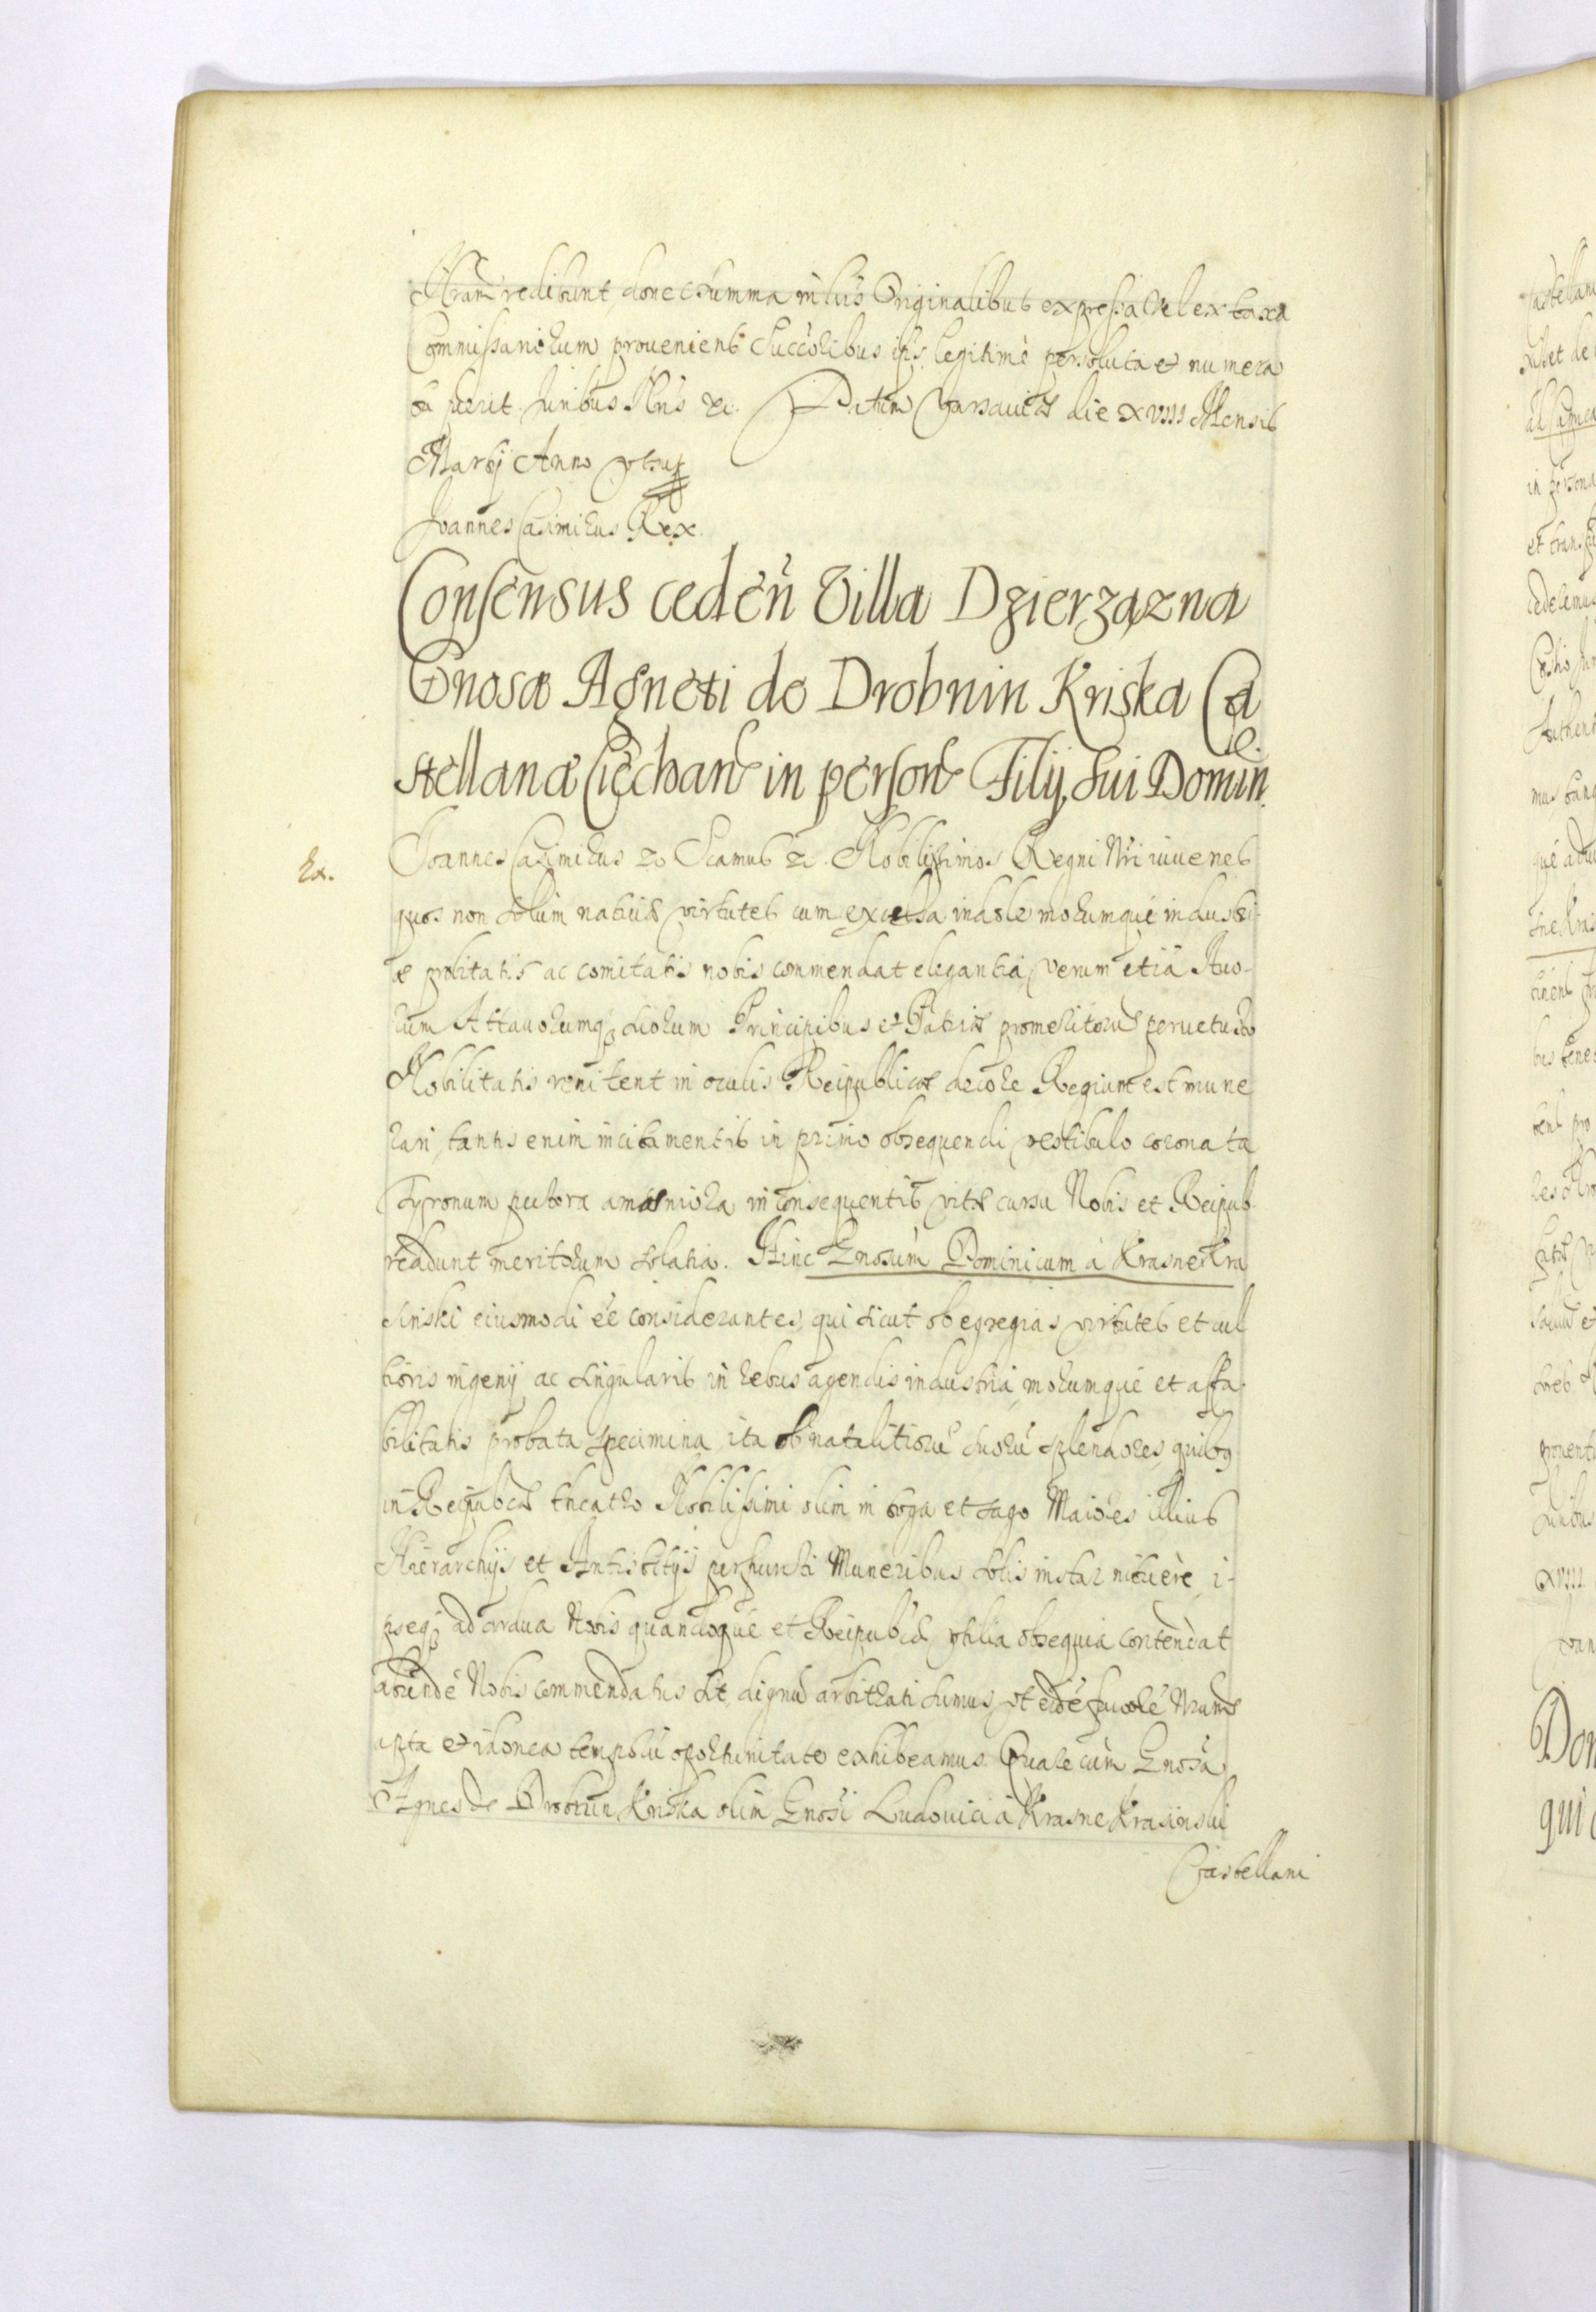 Nram redibunt, donec summa in luis Originalibus expressa vel ex taxa
Commissariorum proueniens Succoribus ipsis legitimè persoluta et numera
ta fuerit. Iuribus Nris &c. Datum Varsauiæ die XVIII Mensis
Martij Anno vtsup
Joannes Casimirus Rex.
Consensus cedeñ Villa Dzierzązna
Gnosæ Agneti de Drobnin Kriska Ca
stellanæ Ciechan in person Filij sui Domin
ic.
Ex.
Joannes Casimirus &c Scamus &c. Nobilissimos Regni Nri iuuenes
quos non solùm natiuæ virtutes cum excelsa indole morumque industri-
æ probitatis ac comitatis nobis commendat elegantia, verum etiã Auo-
rum Attauorumq suorum Principibus et Patriæ promeritorũ peruetusto
Nobilitatis renitent in oculis Reipublicæ decore Regium est mune
rari, tantis enim incitamentis in primo obsequendi vestibulo coronata
Tyronum pectora amæniora in consequentis vitæ cursu Nobis et Reipub
reddunt meritorum solatia. Hinc Gnosum Dominicum à Krasne Kra
sinski eiusmodi eẽ considerantes, qui sicut ob egregias virtutes et cul
tioris ingenij ac singularis in rebus agendis industria, morumque et affa-
bilitatis probata specimina, ita ob natalitiorũ suorũ splendores, quibq
in Reipubcæ theatro Nobilissimi olim in toga et sago Maiores illius
Hierarchijs et Antistitijs perfuncti Muneribus solis instar nituêre, i-
pseq ad ardua Nobis quandoque et Reipubcæ vtilia obsequia contendat
abunde Nobis commendatus sit, dignũ arbitrati sumus, vt eidẽ fauorẽ Nrum
apta et idonea temporũ oportunitate exhibeamus. Quare cum Gnosa
Agnes de Drobnin Kriska olim Gnosi Ludouici à Krasne Krasinski
Castellani